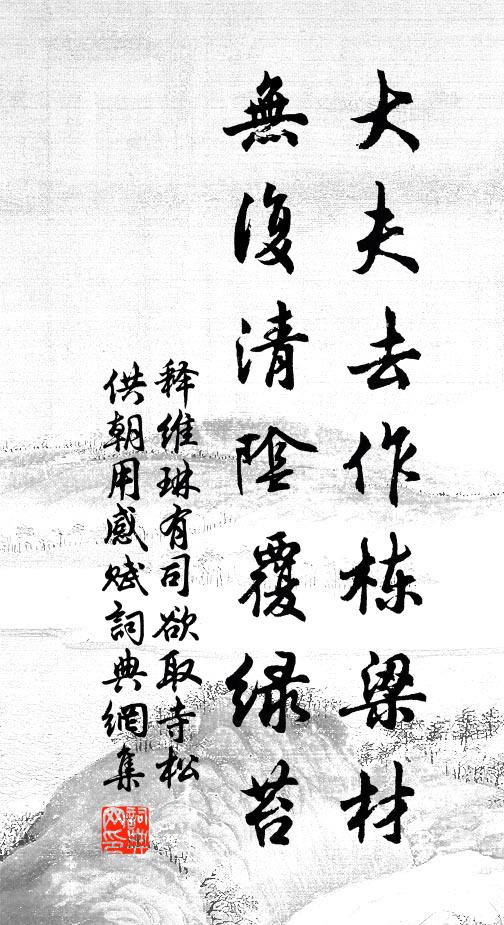 大夫去作栋梁材
無復清陰覆绿苔
释维琳有司欲取寺松
供朝用感赋詞典網集